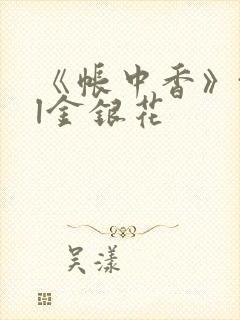 《帐中香》
l金银花
吴漾